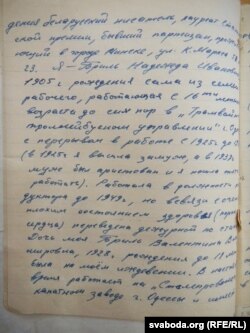 дения белорусский писатель, лауреат Стали-
ской премии, бывший партизан, прожи-
ющий в городе Минске, ул. К. Маркса
23. Я - Бриль Надежда Ивановна
1905 г. рождения сама из семьи
рабочего, работающая с 16ти
возраста до сих пор в "Трамвайно
троллейбусном управлении" г.
с перерывом в работе с 1925г. до
(в 1925г. я вышла замуж, а в 1937г.
муж был арестован и я пошла
работать). Работала в должности
дуктора до 1949г., но в связи с
плохим состоянием здоровья
сердца) переведена дежурной по
Дочь моя Бриль Валентина
мировна, 1928г. рождения до
была на моём иждивении. В настоящее
время работает на "Сталепроволочно
канатном заводе" г. Одессы и
svaboda.org (RFE/RL)